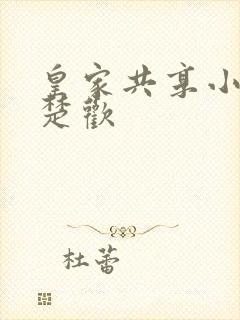 皇家共享小
楚歡
杜蕾